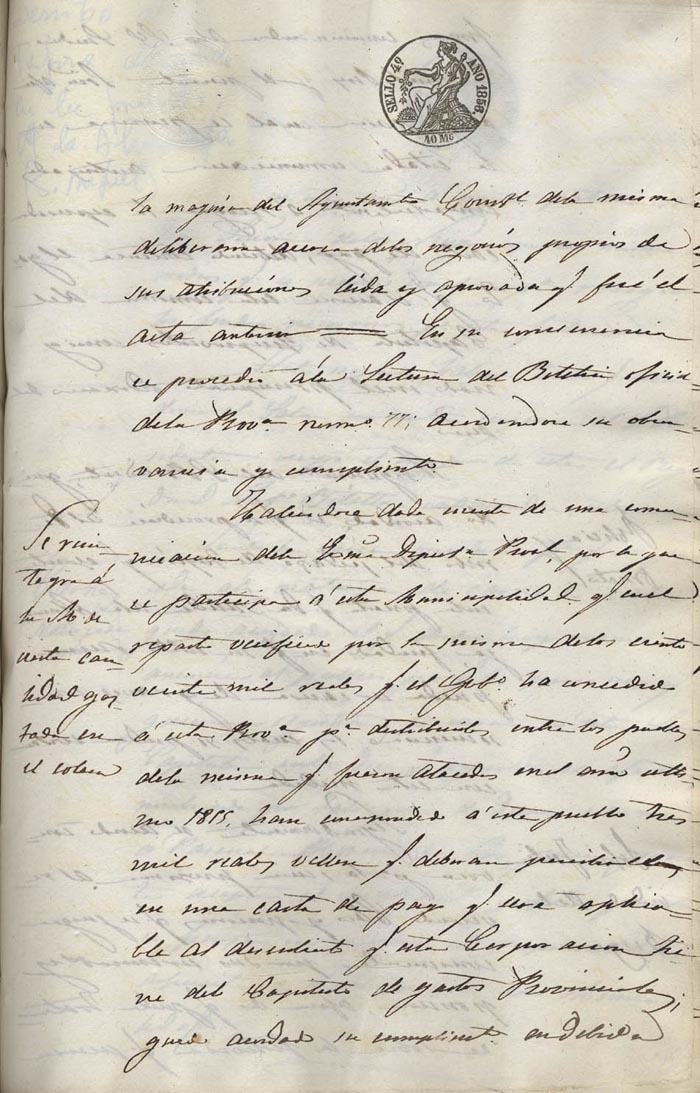 SELLO 4º AÑO 1856.
40 Ms
la mayoria del Ayuntamto Constl dela misma
deliberaron acerca delos negocios propios de
sus atribuciones leida y aprovada qe fué el
acta anterior = En su consecuencia
se procedió ála Lectura del Boletin oficial
dela Prova numo 77; acordandose su obser-
vancia y cumplimto
Habiéndose dado cuenta de una comu-
nicacion dela Exma Diputn Provl, por la que
se participa á esta Municipalidad qe en el
reparto verificado por la misma delos ciento
veinte mil reales qe el Gobo ha concedido
á esta Prova pa distribuirlos entre los pueblos
dela misma qe fueron atacados en el año ulti-
mo 1855, han correspondido á este pueblo tres
mil reales vellon qe deberan percibirse
en una carta de pago qe sera aplica-
ble al descubierto qe esta Corporacion tie-
ne del Cupo de gastos Provinciales;
quedó acordado su cumplimto en debida
Se rein-
tegra á
la M. de
cierta can-
tidad gas-
tada en
el colera